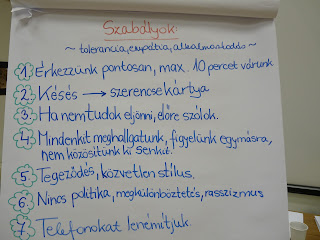 Szabályok:
~ tolerancia, empátia, alkalmazkodás ~
1. Érkezzünk pontosan, max. 10 percet várunk
2. Késés → szerencsekártya
3. Ha nem tudok eljönni, előre szólok.
4. Mindenkit meghallgatunk, figyelünk egymásra,
nem közösítünk ki senkit.
5. Tegeződés, közvetlen stílus.
6. Nincs politika, megkülönböztetés, rasszizmus
7. Telefonokat lenémítjuk.